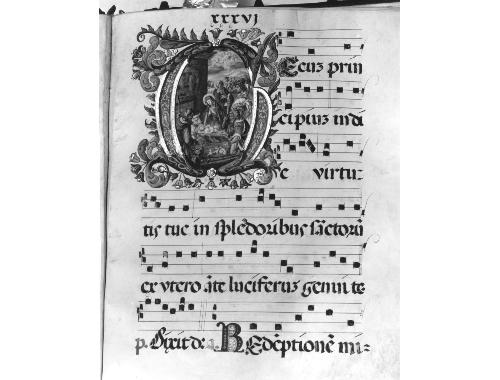 xxxvj
TEcuz prin
cipiuz in di
e virtu-
tis tue in splēdoribus sāctorū
ex vtero āte luciferuz genui te
p. Dixit d: a. Redēptionē mi-